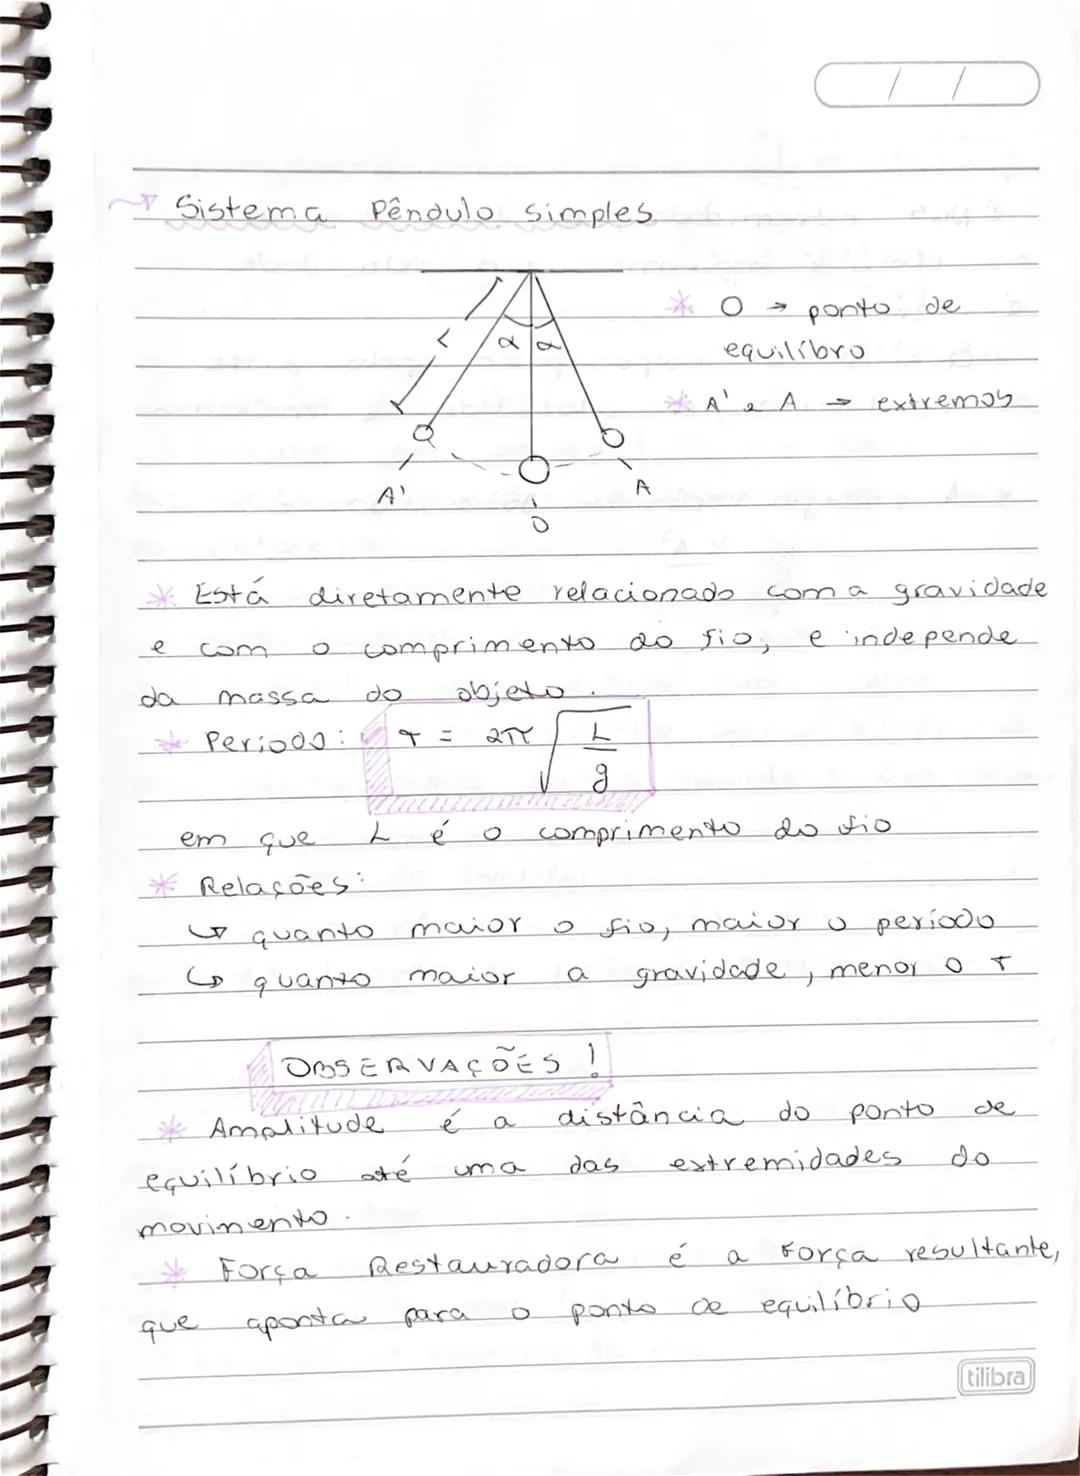 / /
Sistema Pêndulo simples
* O → ponto de
equilíbro
* A' e A → extremos
L
α α
A'
A
O
* Está diretamente relacionado com a gravidade
e com o comprimento do fio, e independe
da massa do objeto.
* Período: T = 2π √ L / g
em que L é o comprimento do fio
* Relações:
↳ quanto maior o fio, maior o período
↳ quanto maior a gravidade, menor o T
OBSERVAÇÕES !
* Amplitude é a distância do ponto de
equilíbrio até uma das extremidades do
movimento.
* Força Restauradora é a força resultante,
que aponta para o ponto de equilíbrio
tilibra